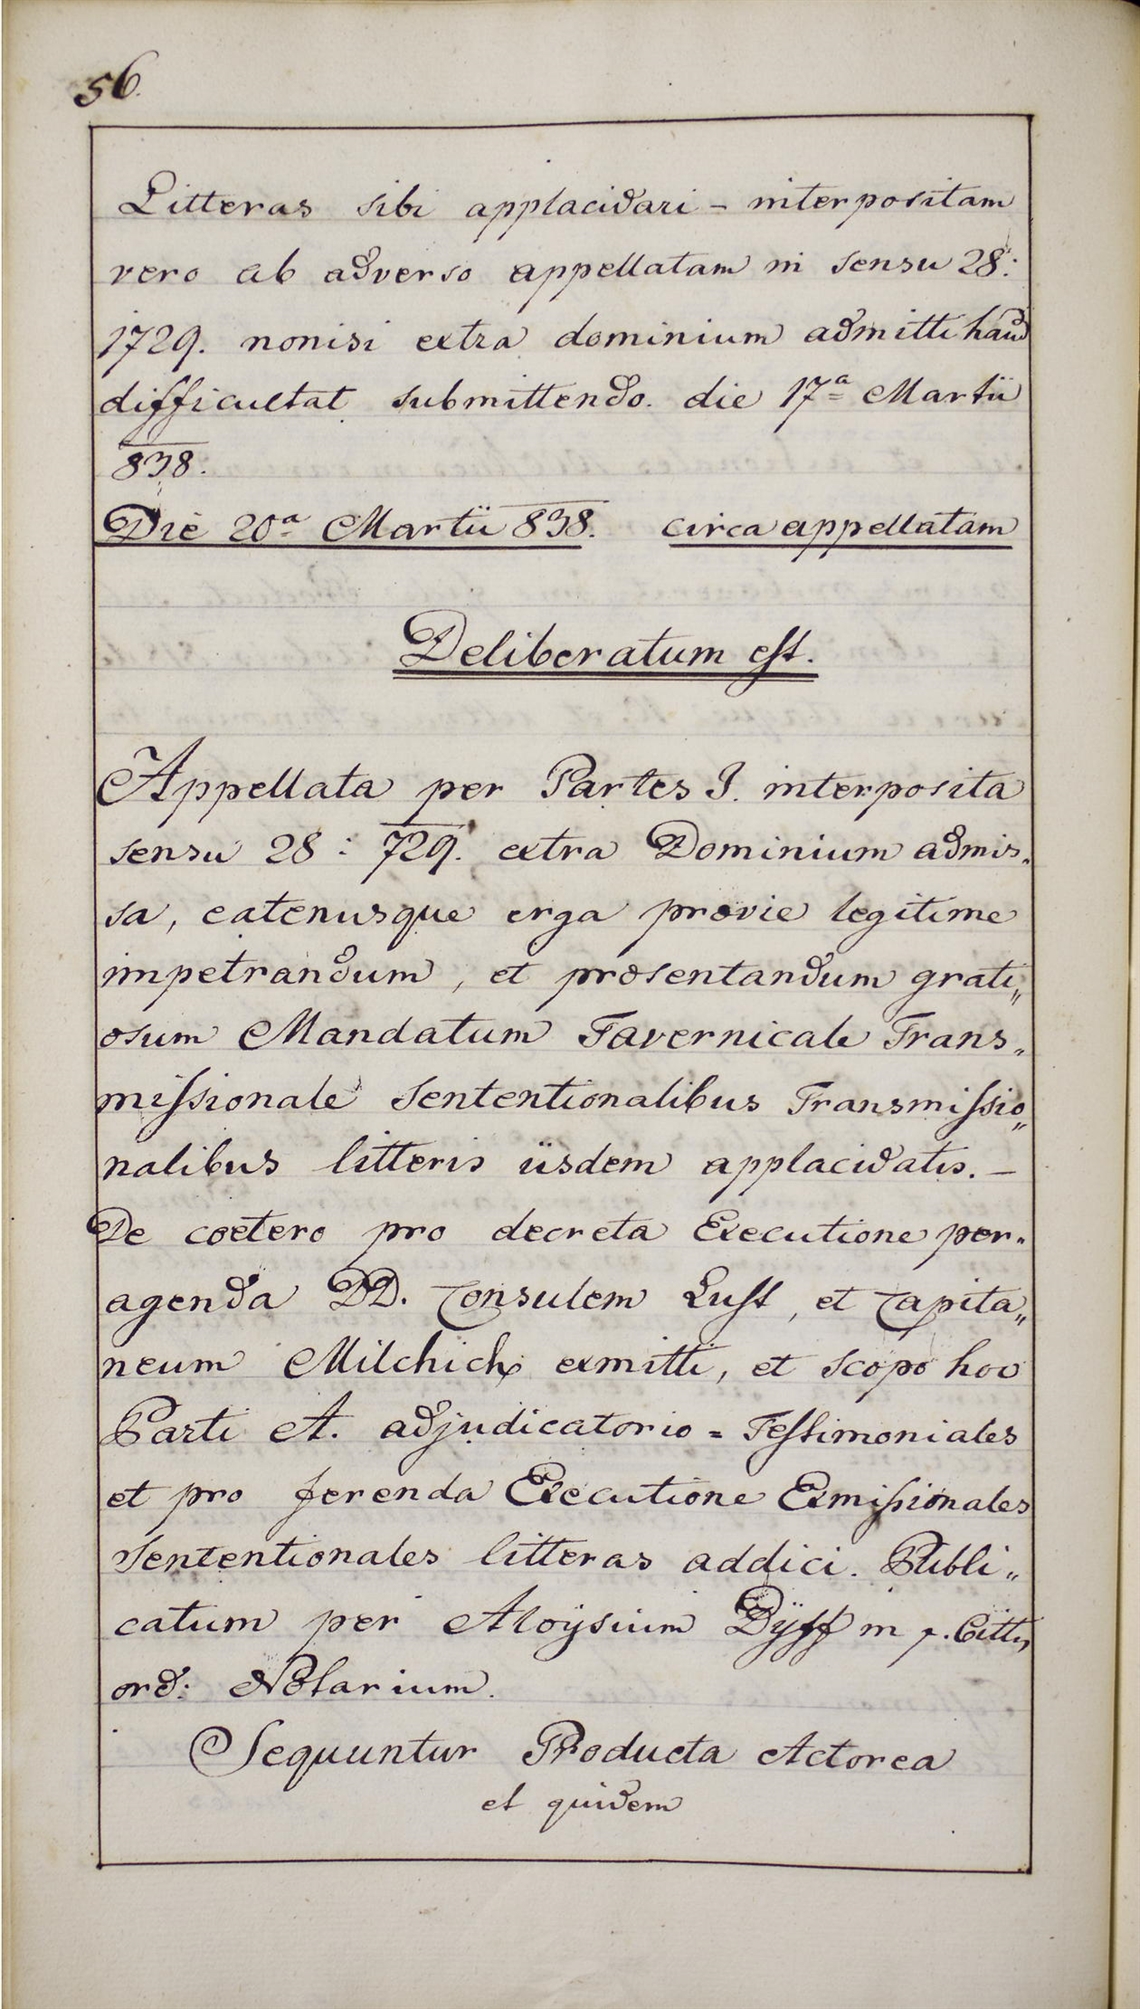 56.
Litteras sibi applacidari – interpositam
vero ab adverso appellatam in sensu 28:
1729. nonisi extra dominium admitti haud
difficultat submittendo. die 17ª Martii
838.
Die 20ª Martii 838. circa appellatam
Deliberatum est.
Appellata per Partes I. interposita
sensu 28: 729. extra Dominium admis„
sa, eatenusque erga prævie legitime
impetrandum, et præsentandum grati„
osum Mandatum Tavernicale Trans„
missionale Sententionalibus Transmissio„
nalibus litteris iisdem applacidatis. –
De coetero pro decreta Executione per„
agenda DD. Consulem Lust, et Capita„
neum Milchich exmitti, et scopo hoc
Parti A. adjudicatorio = Testimoniales
et pro ferenda Executione Exmissionales
Sententionales litteras addici. Publi„
catum per Aloÿsium Dÿff m p. Citttis
ord: Notarium.
Sequuntur Producta Actorea
et quidem